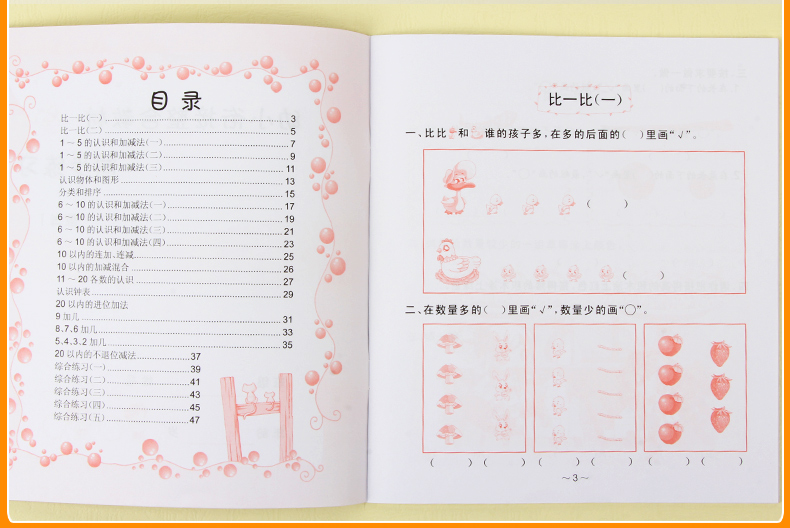 目录
比一比(一)……3
比一比(二)……5
1～5的认识和加减法(一)……7
1～5的认识和加减法(二)……9
1～5的认识和加减法(三)……11
认识物体和图形……13
分类和排序……15
6～10的认识和加减法(一)……17
6～10的认识和加减法(二)……19
6～10的认识和加减法(三)……21
6～10的认识和加减法(四)……23
10以内的连加、连减……25
10以内的加减混合……26
11～20各数的认识……27
认识钟表……29
20以内的进位加法
9加几……31
8、7、6加几……33
5、4、3、2加几……35
20以内的不退位减法……37
综合练习(一)……39
综合练习(二)……41
综合练习(三)……43
综合练习(四)……45
综合练习(五)……47
比一比(一)
一、比比和谁的孩子多,在多的后面的( )里画“√”。
( )
( )
二、在数量多的( )里画“√”,数量少的画“○”。
( ) ( ) ( ) ( ) ( ) ( )
～3～